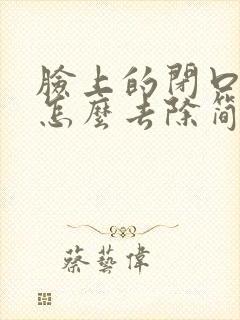 臉上的閉口
怎麼去除簡
蔡藝偉